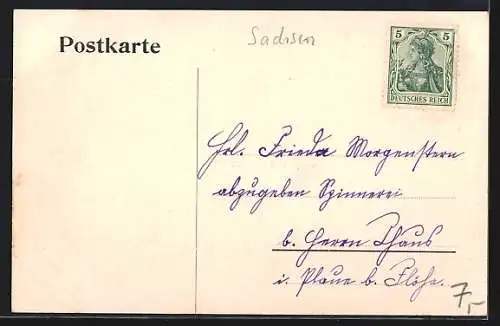 Sachsen
Postkarte
5 5
DEUTSCHES REICH
Frl. Frieda Morgenstern
abzugeben Spinnerei
b. Herrn Thaus
i. Plaue b. Flöha.
7,-